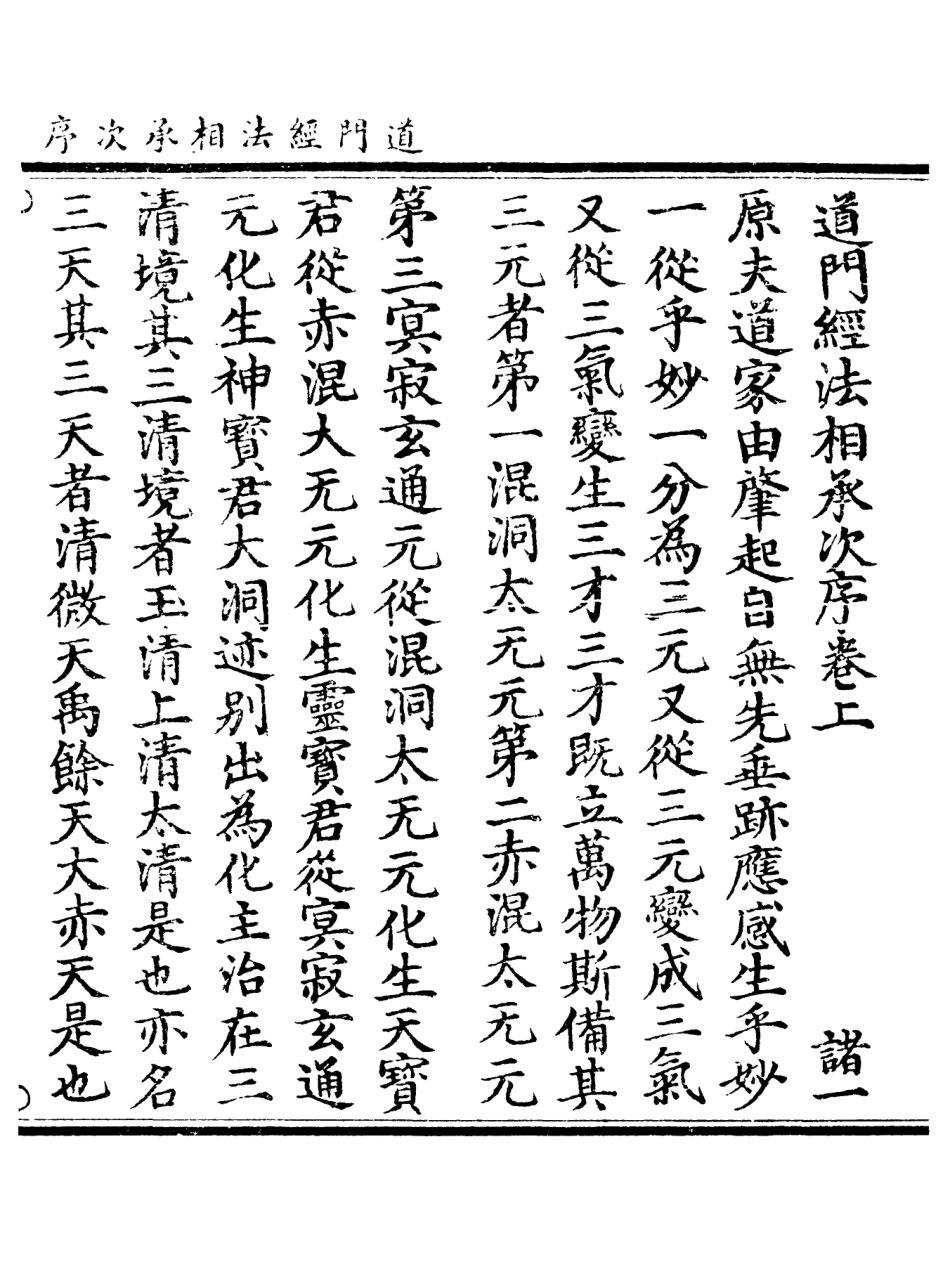 道門經法相承次序
道門經法相承次序卷上 諸一
原夫道家由肇起自無先垂跡應感生乎妙
一從乎妙一分為三元又從三元變成三氣
又從三氣變生三才三才既立萬物斯備其
三元者第一混洞太无元第二赤混太无元
第三冥寂玄通元從混洞太无元化生天寶
君從赤混大无元化生靈寶君從冥寂玄通
元化生神寶君大洞迹別出為化主治在三
清境其三清境者玉清上清太清是也亦名
三天其三天者清微天禹餘天大赤天是也